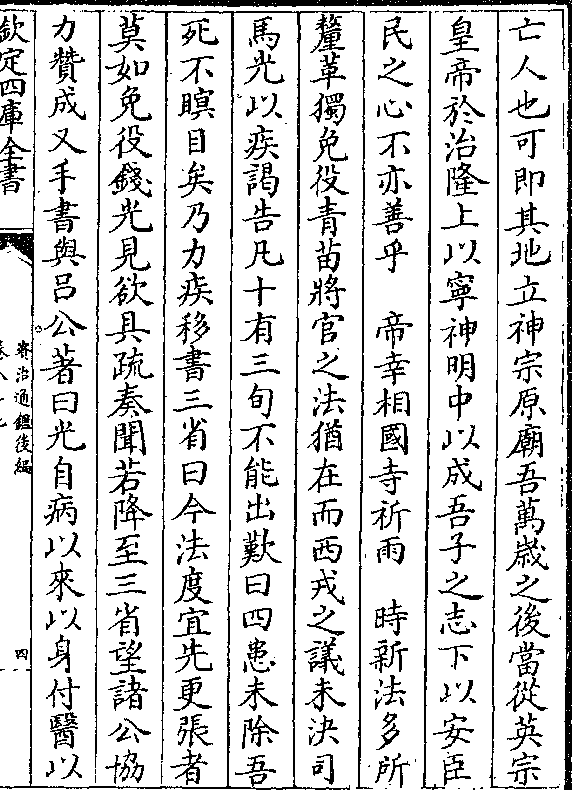 亡人也可即其地立神宗原廟吾萬歲之後當從英宗
皇帝於治隆上以寧神明中以成吾子之志下以安臣
民之心不亦善乎　帝幸相國寺祈雨　時新法多所
釐革獨免役青苗將官之法猶在而西戎之議未決司
馬光以疾謁告凡十有三旬不能出歎曰四患未除吾
死不瞑目矣乃力疾移書三省曰今法度宜先更張者
莫如免役錢光見欲具疏奏聞若降至三省望諸公協
力贊成又手書與呂公著曰光自病以來以身付醫以
欽定四庫全書
資治通鑑後編
四